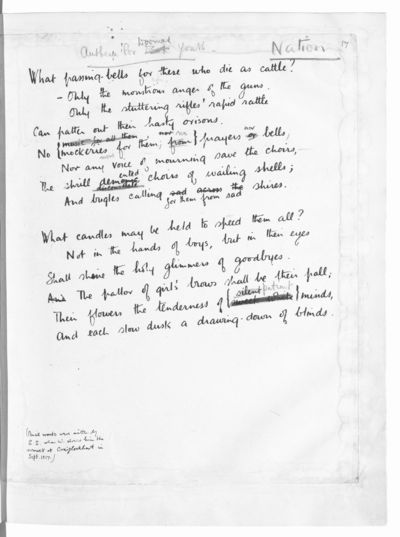 Anthem for Doomed Youth. Nation 17
What passing-bells for these who die as cattle?
- Only the monstrous anger of the guns.
Only the stuttering rifles' rapid rattle
Can patter out their hasty orisons.
music for all them nor no
No mockeries for them; from prayers nor or bells,
Nor any voice of mourning save the choirs,-
The shrill demented choirs of wailing shells;
And bugles calling sad across the shires.
for them from sad
What candles may be held to speed them all?
Not in the hands of boys, but in their eyes
Shall shine the holy glimmers of goodbyes.
And The pallor of girls' brows shall be their pall;
Their flowers the tenderness of silent patient minds,
And each slow dusk a drawing-down of blinds.
(Pencil words were written by
S.S. when W. showed him the
sonnet at Craiglockhart in
Sept. 1917.)